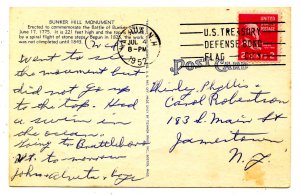 BUNKER HILL MONUMENT
Erected to commemorate the Battle of Bunker
June 17, 1775. It is 221 feet high and the top
by a spiral flight of stone steps. Begun in 1825,
was not completed until 1843.
JUL
8-PM
1952
U.S. TREASURY
DEFENSE BOND
FLAG
Post Card
Went to see
the monument but
did not go up
to the top. Had
a swim in
the ocean.
Going to Brattleboro
Vt. to-morrow
John
Shirley, Phyllis &
Carol Robertson
183 S. Main St
Jamestown
N.Y.